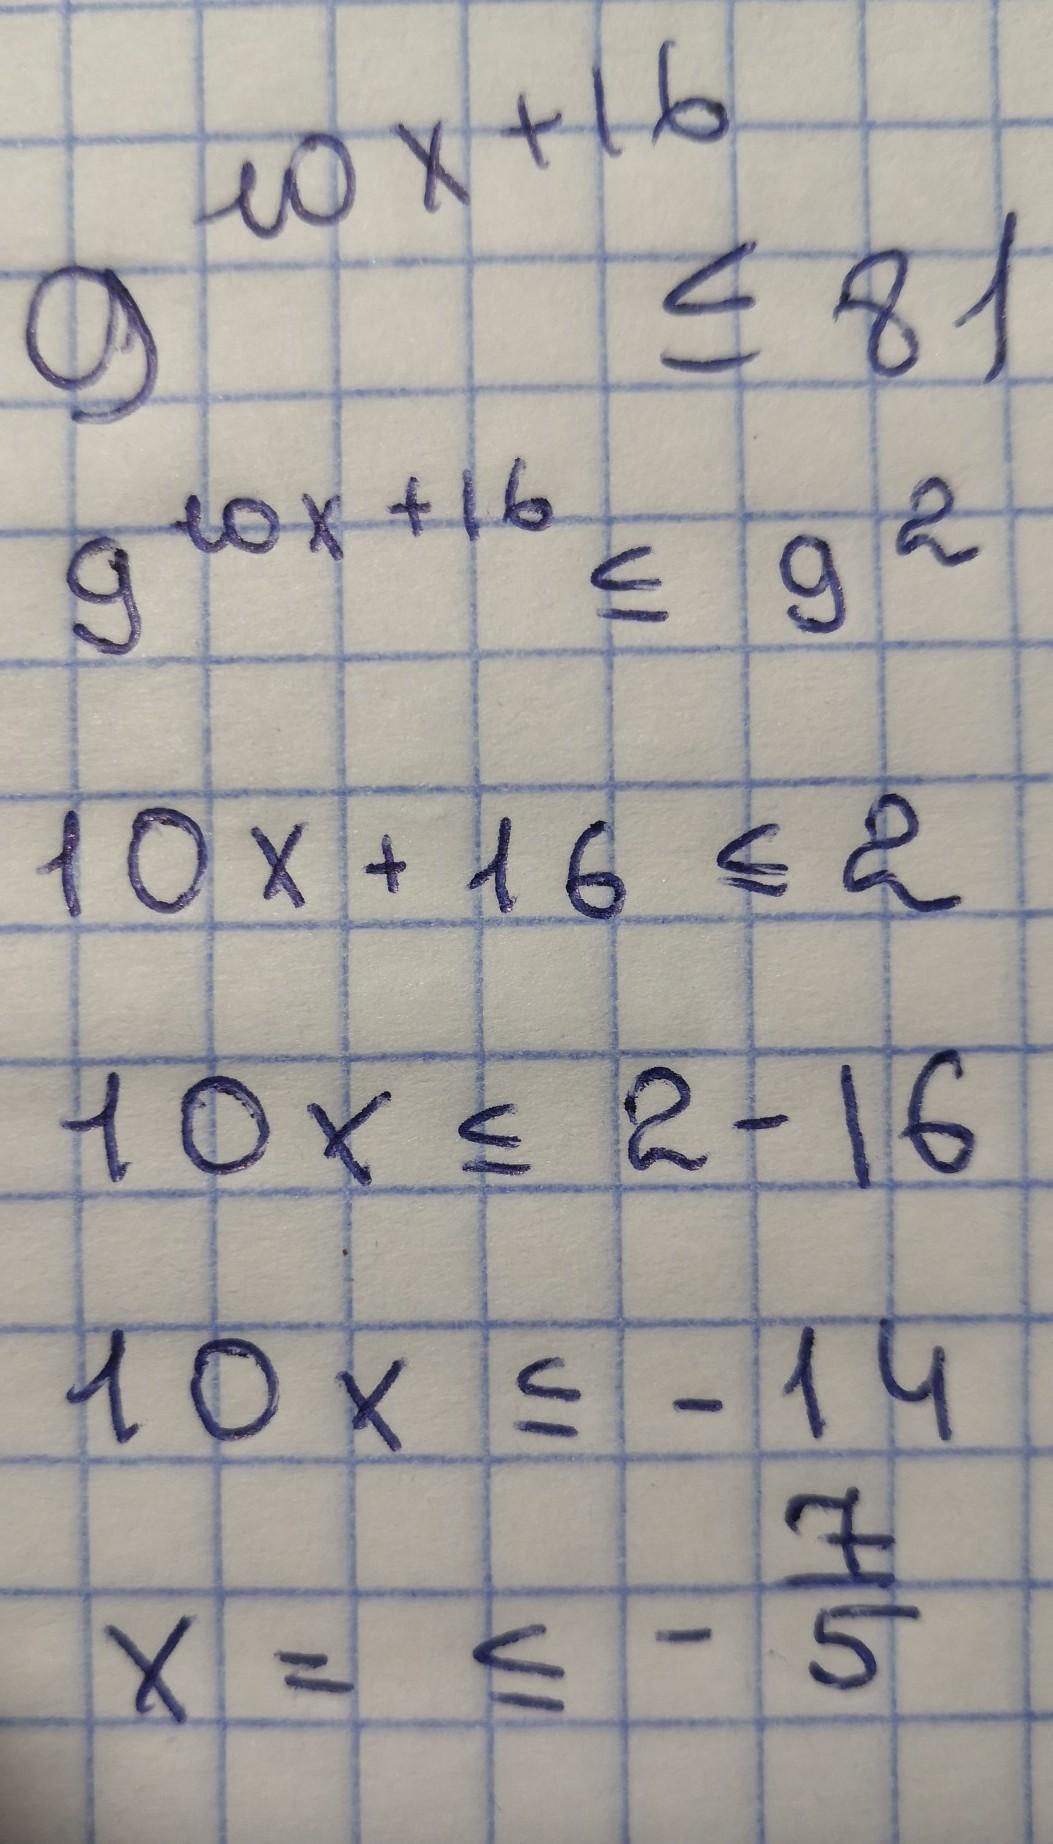 9^{10x+16} ≤ 81
9^{10x+16} ≤ 9^2
10x + 16 ≤ 2
10x ≤ 2 - 16
10x ≤ - 14
x = ≤ - 7/5